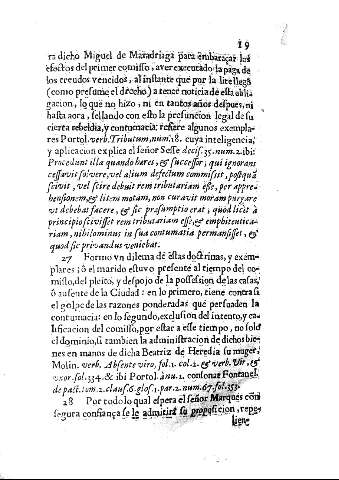 19
ra dicho Miguel de Maradriaga para embaraçar los
efectos del primer comisso, aver executado la paga de
los treudos vencidos, al instante que por la lite llegò
(como presume el drecho) a tener noticia de esta obli-
gacion, lo que no hizo, ni en tantos años despues, ni
hasta aora, sellando con esto la presuncion legal de su
cierta rebeldia, y contumacia: refiere algunos exempla-
res Portol. verb. Tributum, num. 18. cuya inteligencia,
y aplicacion explica el señor Sesse decis. 35. num. 2. ibi:
Procedunt illa quando hæres, & successor; qui ignorans
cessavit solvere, vel alium defectum commisit, postquã
scivit, vel scire debuit rem tributariam esse, per appre-
hensionem, & litem motam, non curavit moram purgare
vt debebat facere, & sic præsumptio erat, quod licèt à
principio sciviſſet rem tributariam esse, & emphiteutica-
riam, nihilominus in sua contumatia permansisset, &
quod sic privandus veniebat.
27 Formo vn dilema de estas doctrinas, y exem-
plares; ò el marido estuvo presente al tiempo del co-
misso, del pleito, y despojo de la possession de las casas,
ò ausente de la Ciudad: en lo primero, tiene contra si
el golpe de las razones ponderadas que persuaden la
contumacia: en lo segundo, exclusion del intento, y ca-
lificacion del comisso, por estar a este tiempo, no solo
el dominio, si tambien la administracion de dichos bie-
nes en manos de dicha Beatriz de Heredia su muger,
Molin. verb. Absente viro, fol. 1. col. 2. & verb. Vir, &
vxor. fol. 334. & ibi Portol. à nu. 1. consonat Fontanel.
de pact. tom. 2. claus. 6. glos. 1. par. 2. num. 67. fol. 353.
28 Por todo lo qual espera el señor Marquès con
segura confiança se le admitirà su proposicion, repe-
liene